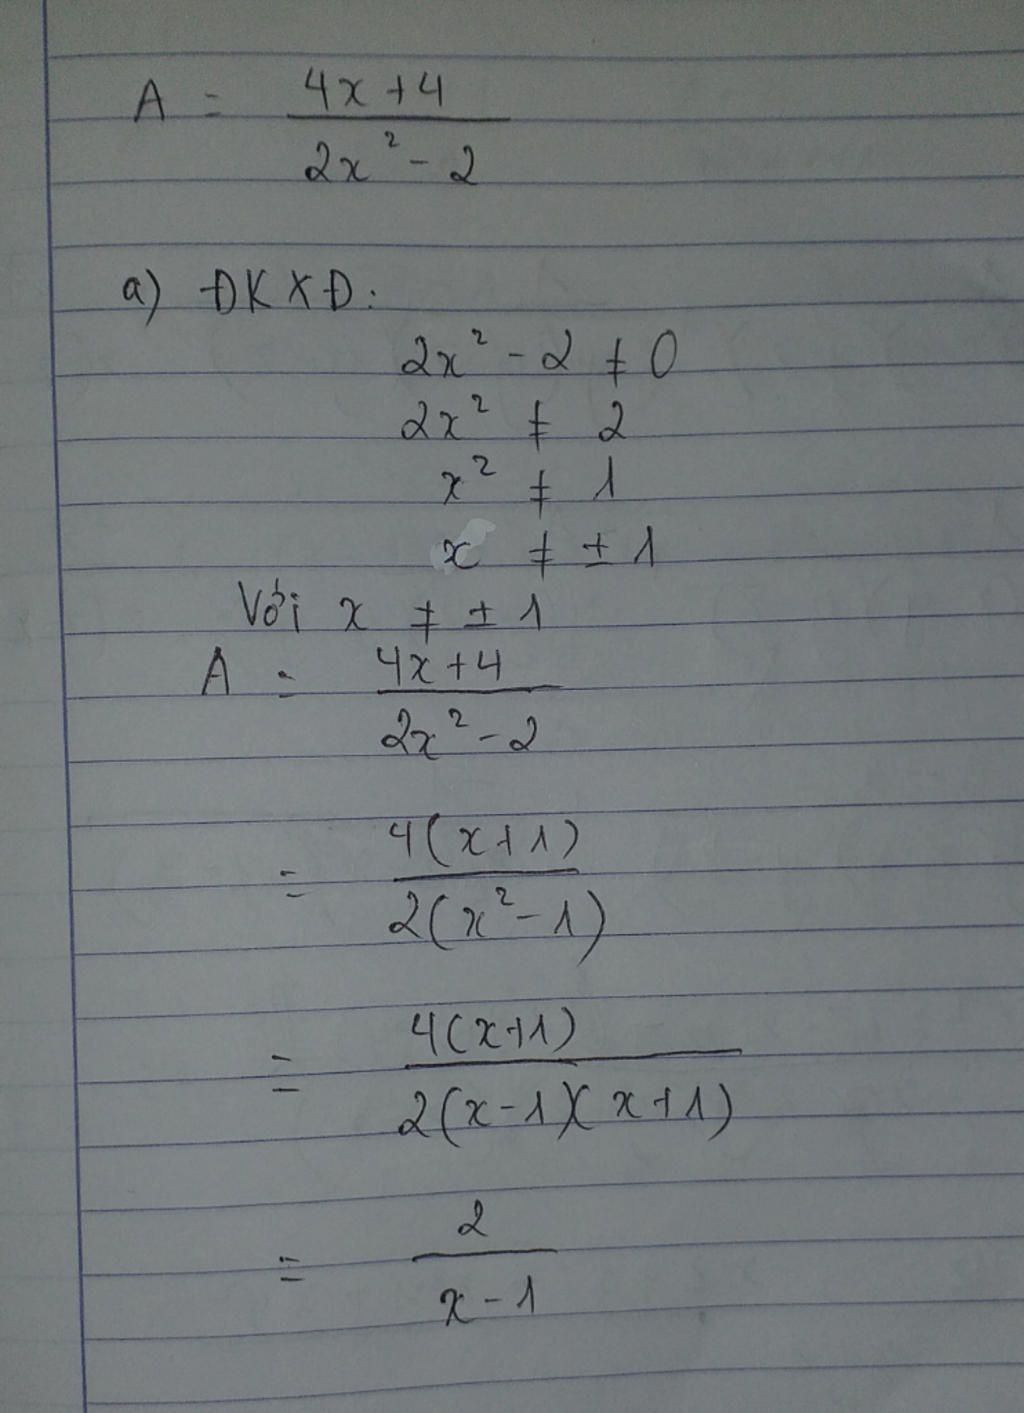 A = (4x+4)/(2x² - 2)
a) ĐKXĐ:
2x² - 2 ≠ 0
2x² ≠ 2
x² ≠ 1
x ≠ ± 1
Với x ≠ ± 1
A = (4x+4)/(2x² - 2)
= 4(x+1)/2(x² - 1)
= 4(x+1)/2(x-1)(x+1)
= 2/(x-1)